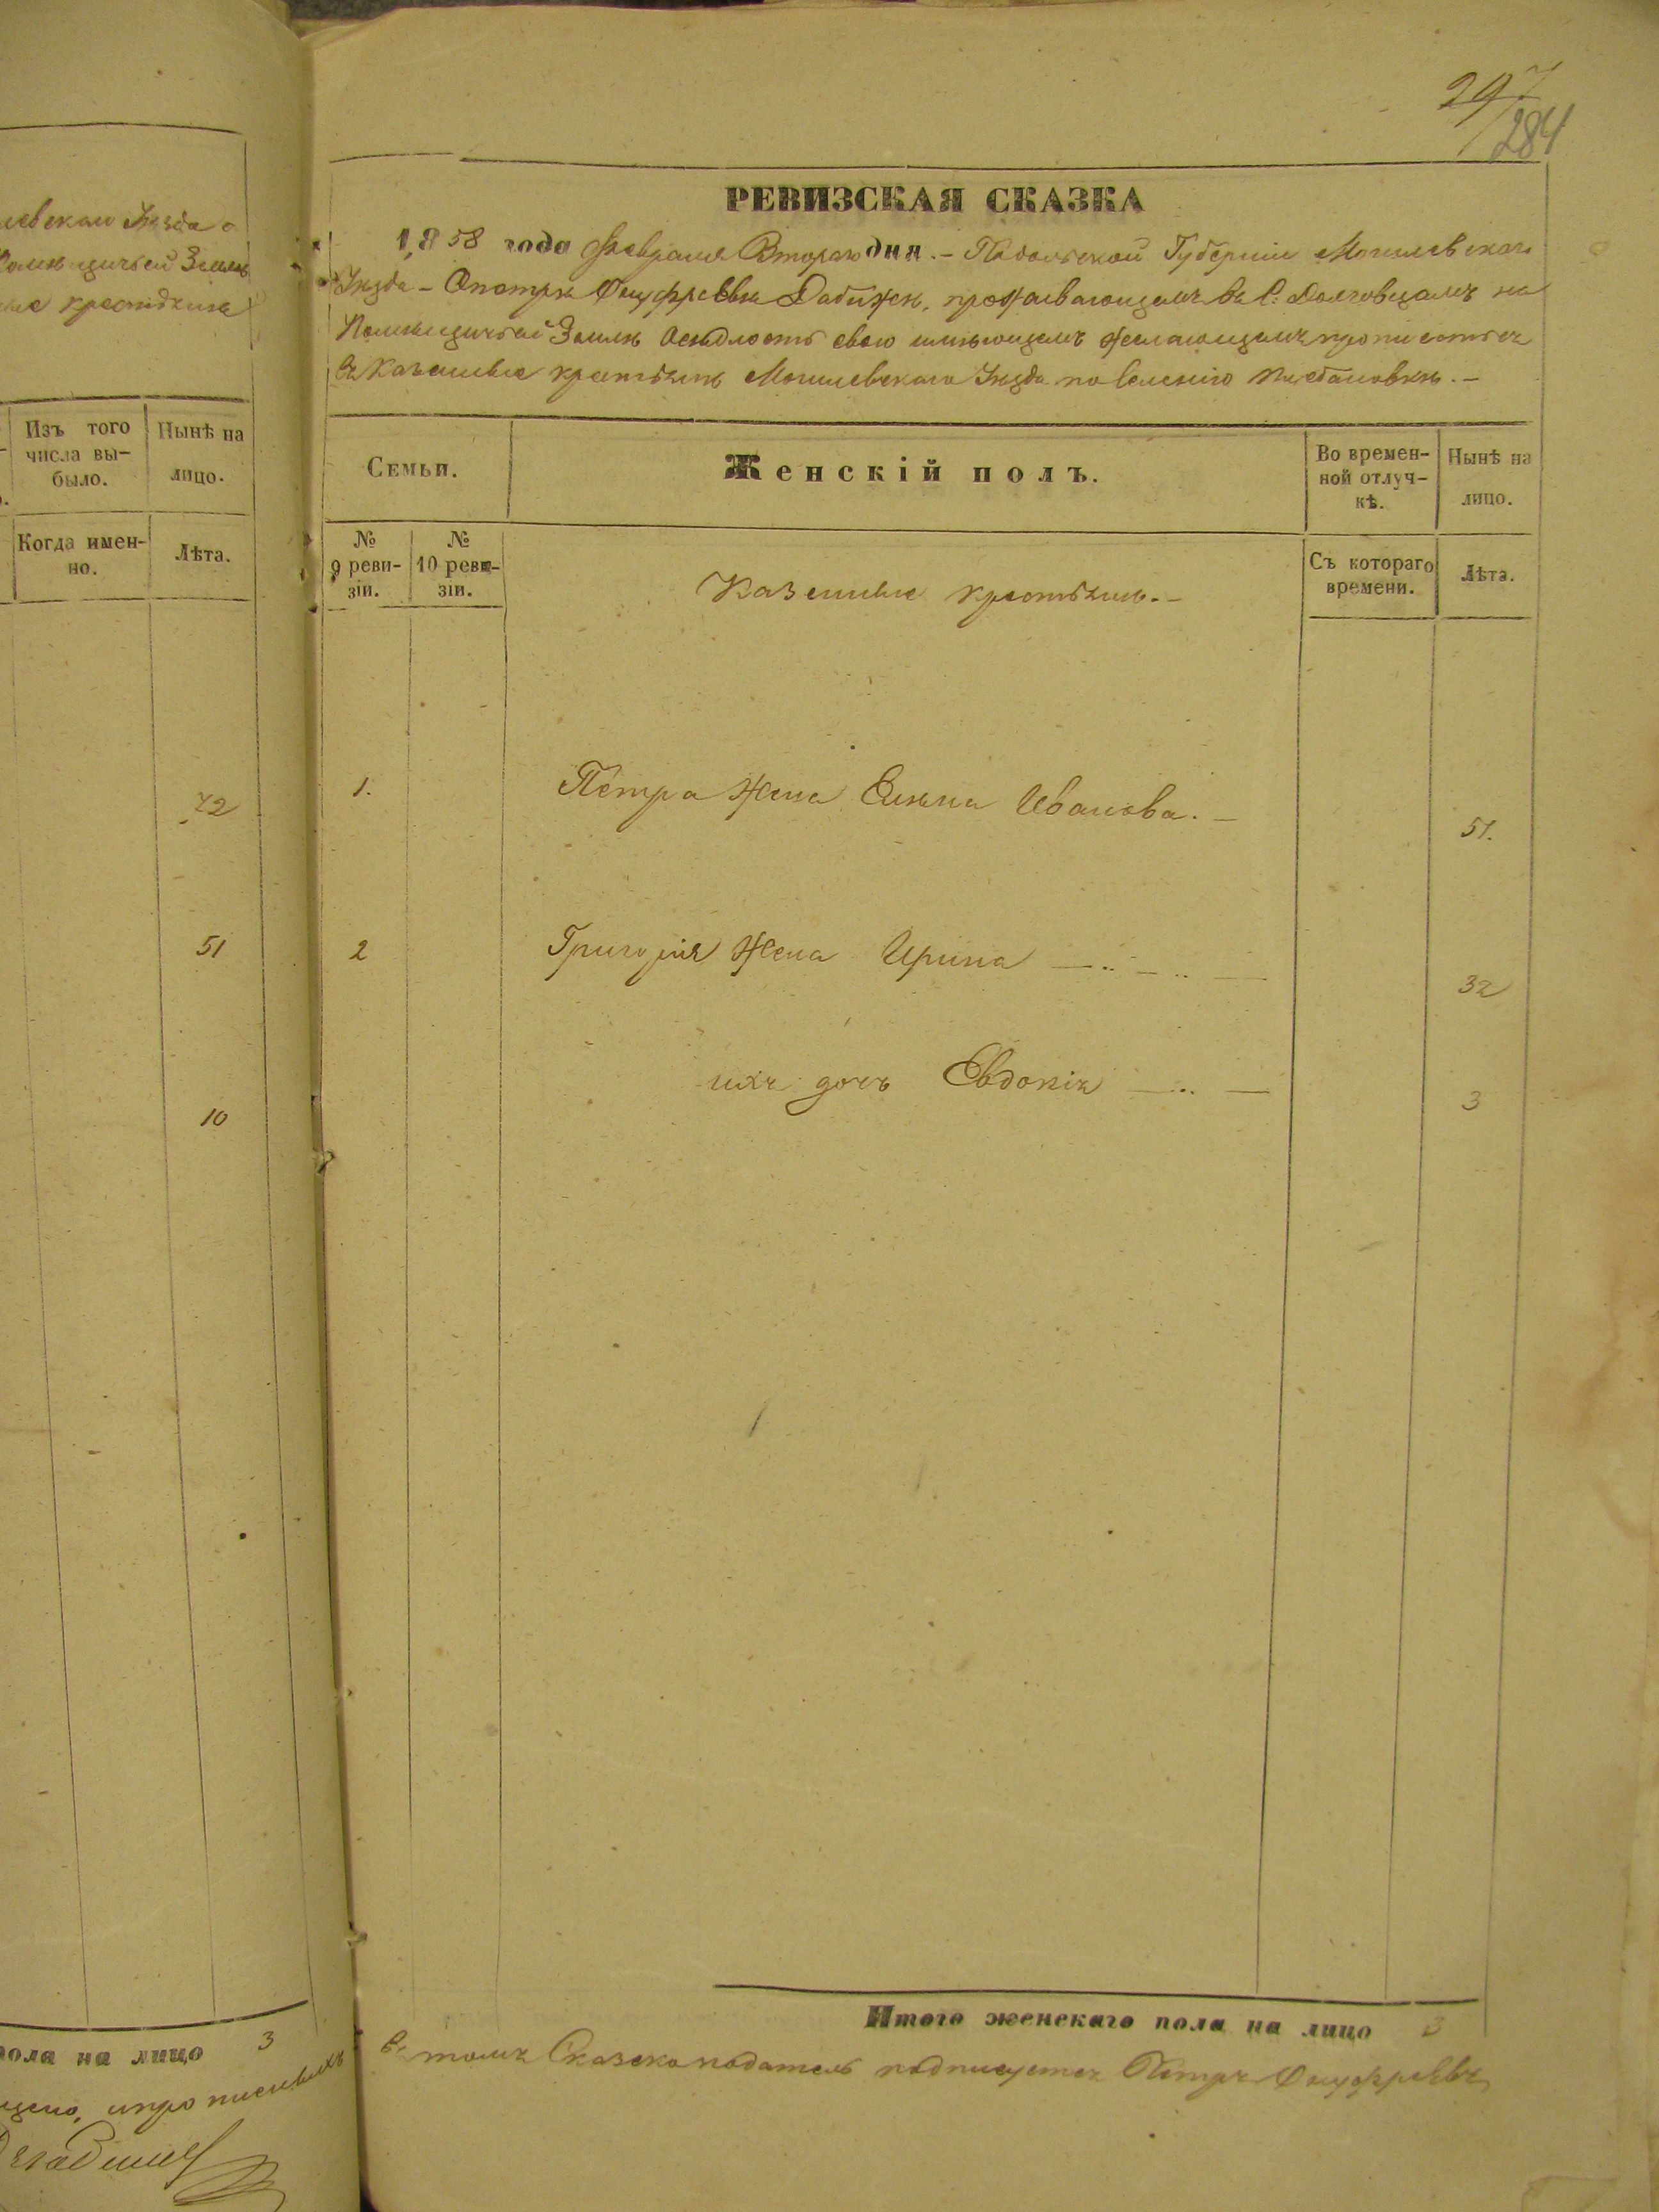 левскаго Уѣзда о
Помѣщичьей Землѣ
крестьяне
Изъ того числа вы-
было.
Нынѣ на
лицо.
Когда имен-
но.
Лѣта.
72
51
10
пола на лицо 3
297
284
РЕВИЗСКАЯ СКАЗКА
1858 года Февраля Втораго дня. – Подольской Губерніи Могилевскаго
Уѣзда – О Петрѣ Онуфреевѣ Дабижѣ, проживающемъ въ С: Долговцахъ на
Помѣщичьей Землѣ осѣдлость свою имѣющемъ желающемъ прописаться
въ Казенные крестьяне Могилевскаго Уѣзда по Селенію
Семьи.
Женскій полъ.
Во времен-
ной отлуч-
кѣ.
Нынѣ на
лицо.
№
9 реви-
зіи.
№
10 реви-
зіи.
Казенные крестьяне. –
Съ котораго
времени.
Лѣта.
1. Петра Жена Елена Иванова. – 51.
2 Григорія Жена Ирина — .. — .. — 32
ихъ дочь Евдокія — .. — 3
Итого женскаго пола на лицо 3
Въ томъ Сказкоподатель подписуется Петръ Онуфреевъ